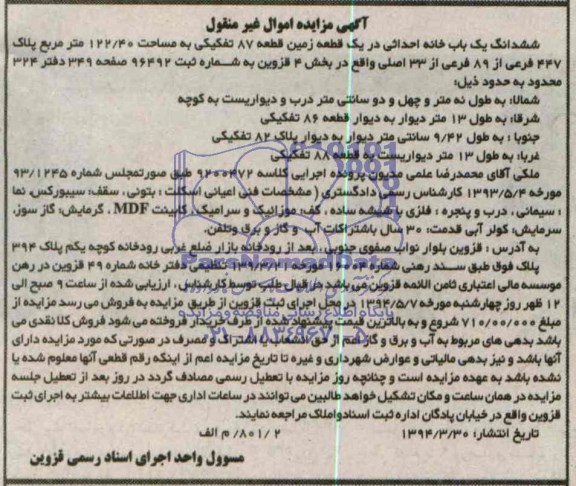 آگهی مزایده اموال غیر منقول
ششدانگ یک باب خانه احداثی در یک قطعه زمین قطعه ۸۷ تفکیکی به مساحت ۱۲۲/۴۰ متر مربع پلاک
۴۴۷ فرعی از ۸۹ فرعی از ۳۳ اصلی واقع در بخش ۴ قزوین به شماره ثبت ۹۶۴۹۲ صفحه ۳۴۹ دفتر ۳۲۴
محدود به حدود ذیل:
شمالا: به طول نه متر و چهل و دو سانتی متر درب و دیواریست به کوچه
شرقا: به طول ۱۳ متر دیوار به دیوار قطعه ۸۶ تفکیکی
جنوبا : به طول ۹/۴۲ سانتی متر دیوار به دیوار پلاک ۸۲ تفکیکی
غربا: به طول ۱۳ متر دیواریست به قطعه ۸۸ تفکیکی
ملکی آقای محمدرضا علمی مدیون پرونده اجرایی کلاسه ۹۲۰۰۴۷۲ طبق صورتمجلس شماره ۹۳/۱۲۴۵
مورخه ۱۳۹۳/۵/۴ کارشناس رسمی دادگستری ( مشخصات فنی اعیانی اسکلت : بتونی ، سقف: سیپورکس، نما
: سیمانی ، درب و پنجره : فلزی با شیشه ساده ، کف: موزائیک و سرامیک، کابینت MDF ، گرمایش: گاز سوز،
سرمایش: کولر آبی قدمت: ۳۰ سال باشتراکات آب و گاز و برق وتلفن.
به آدرس : قزوین بلوار نواب صفوی جنوبی، بعد از رودخانه بازار ضلع غربی رودخانه کوچه یکم پلاک ۳۹۴
پلاک فوق طبق سند رهنی شماره ۱۶۰۰۴ مورخه ۱۳۹۱/۴/۲۱ تنظیمی دفتر خانه شماره ۴۹ قزوین در رهن
موسسه مالی اعتباری ثامن الائمه قزوین می باشد در قبال طلب توسط کارشناس ، ارزیابی شده از ساعت ۹ صبح الی
۱۲ ظهر روز چهارشنبه مورخه ۱۳۹۴/۵/۷ در محل اجرای ثبت قزوین از طریق مزایده به فروش می رسد مزایده از
مبلغ ۷۱۰/۰۰/۰۰۰ شروع و به بالاترین قیمت پیشنهاد شده از طرف خریدار فروخته می شود فروش کلا نقدی می
باشد بدهی های مربوط به آب و برق و گاز اعم از حق انشعاب و یا اشتراک و مصرف در صورتی که مورد مزایده دارای
آنها باشد و نیز بدهی مالیاتی و عوارض شهرداری و غیره تا تاریخ مزایده اعم از اینکه رقم قطعی آنها معلوم شده یا
نشده باشد به عهده مزایده است و چنانچه روز مزایده با تعطیل رسمی مصادف گردد در روز بعد از تعطیل جلسه
مزایده در همان ساعت و مکان تشکیل خواهد طالبین می توانند در ساعات اداری جهت اطلاعات بیشتر به اجرای ثبت
قزوین واقع در خیابان پادگان اداره ثبت اسنادواملاک مراجعه نمایند.
تاریخ انتشار: ۱۳۹۴/۳/۳۰ ۸۰۱/۲ م الف
مسوول واحد اجرای اسناد رسمی قزوین
ParsNamadData
پایگاه اطلاع رسانی مناقصه و مزایده